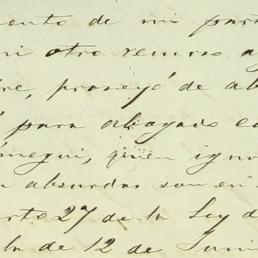 ento de mi par
ni otro recurso a
re, proveyó de ab
para abogado e
ónegui, quien igno
n absurdas son en
arto 27 de la Ley d
la de 12 de Juni